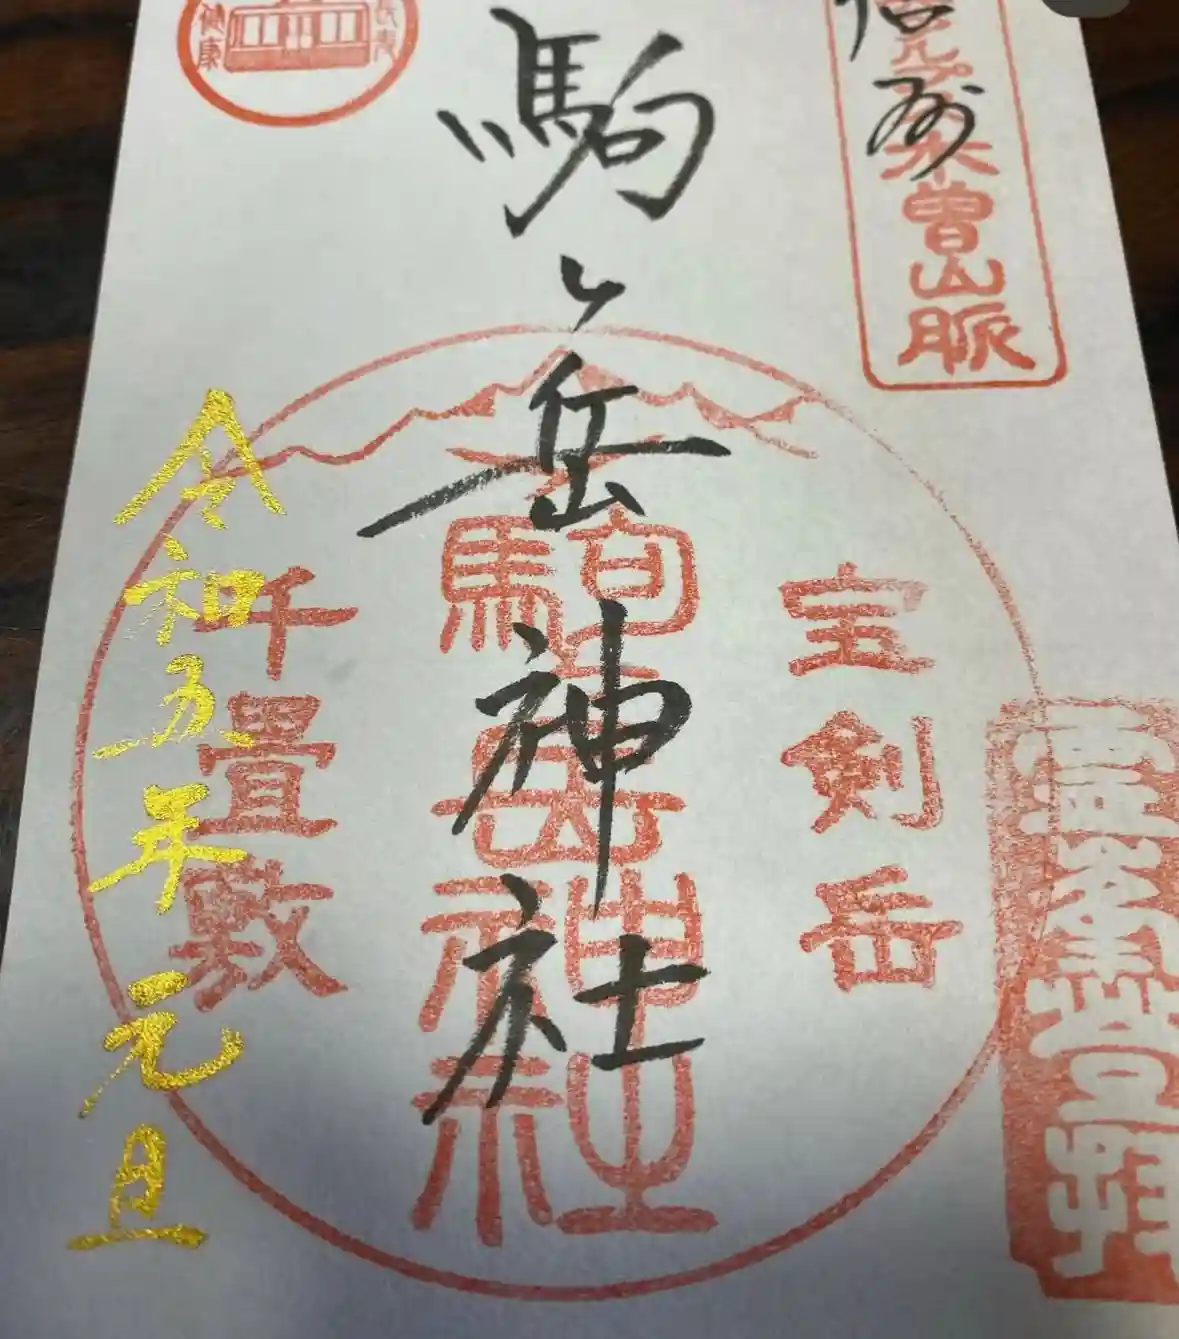 信州
アルプス木曽山脈
駒ヶ岳神社
宝剣岳
駒ヶ岳神社
千畳敷
令和五年元旦
健康
登拝